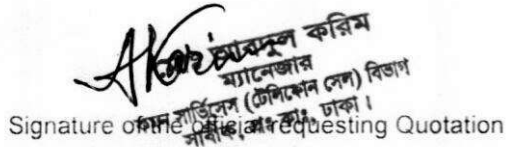 AKarim
আবদুল করিম
ম্যানেজার
সার্ভিসেস (টেলিফোন সেল) বিভাগ
ঢাকা।
Signature of the official requesting Quotation